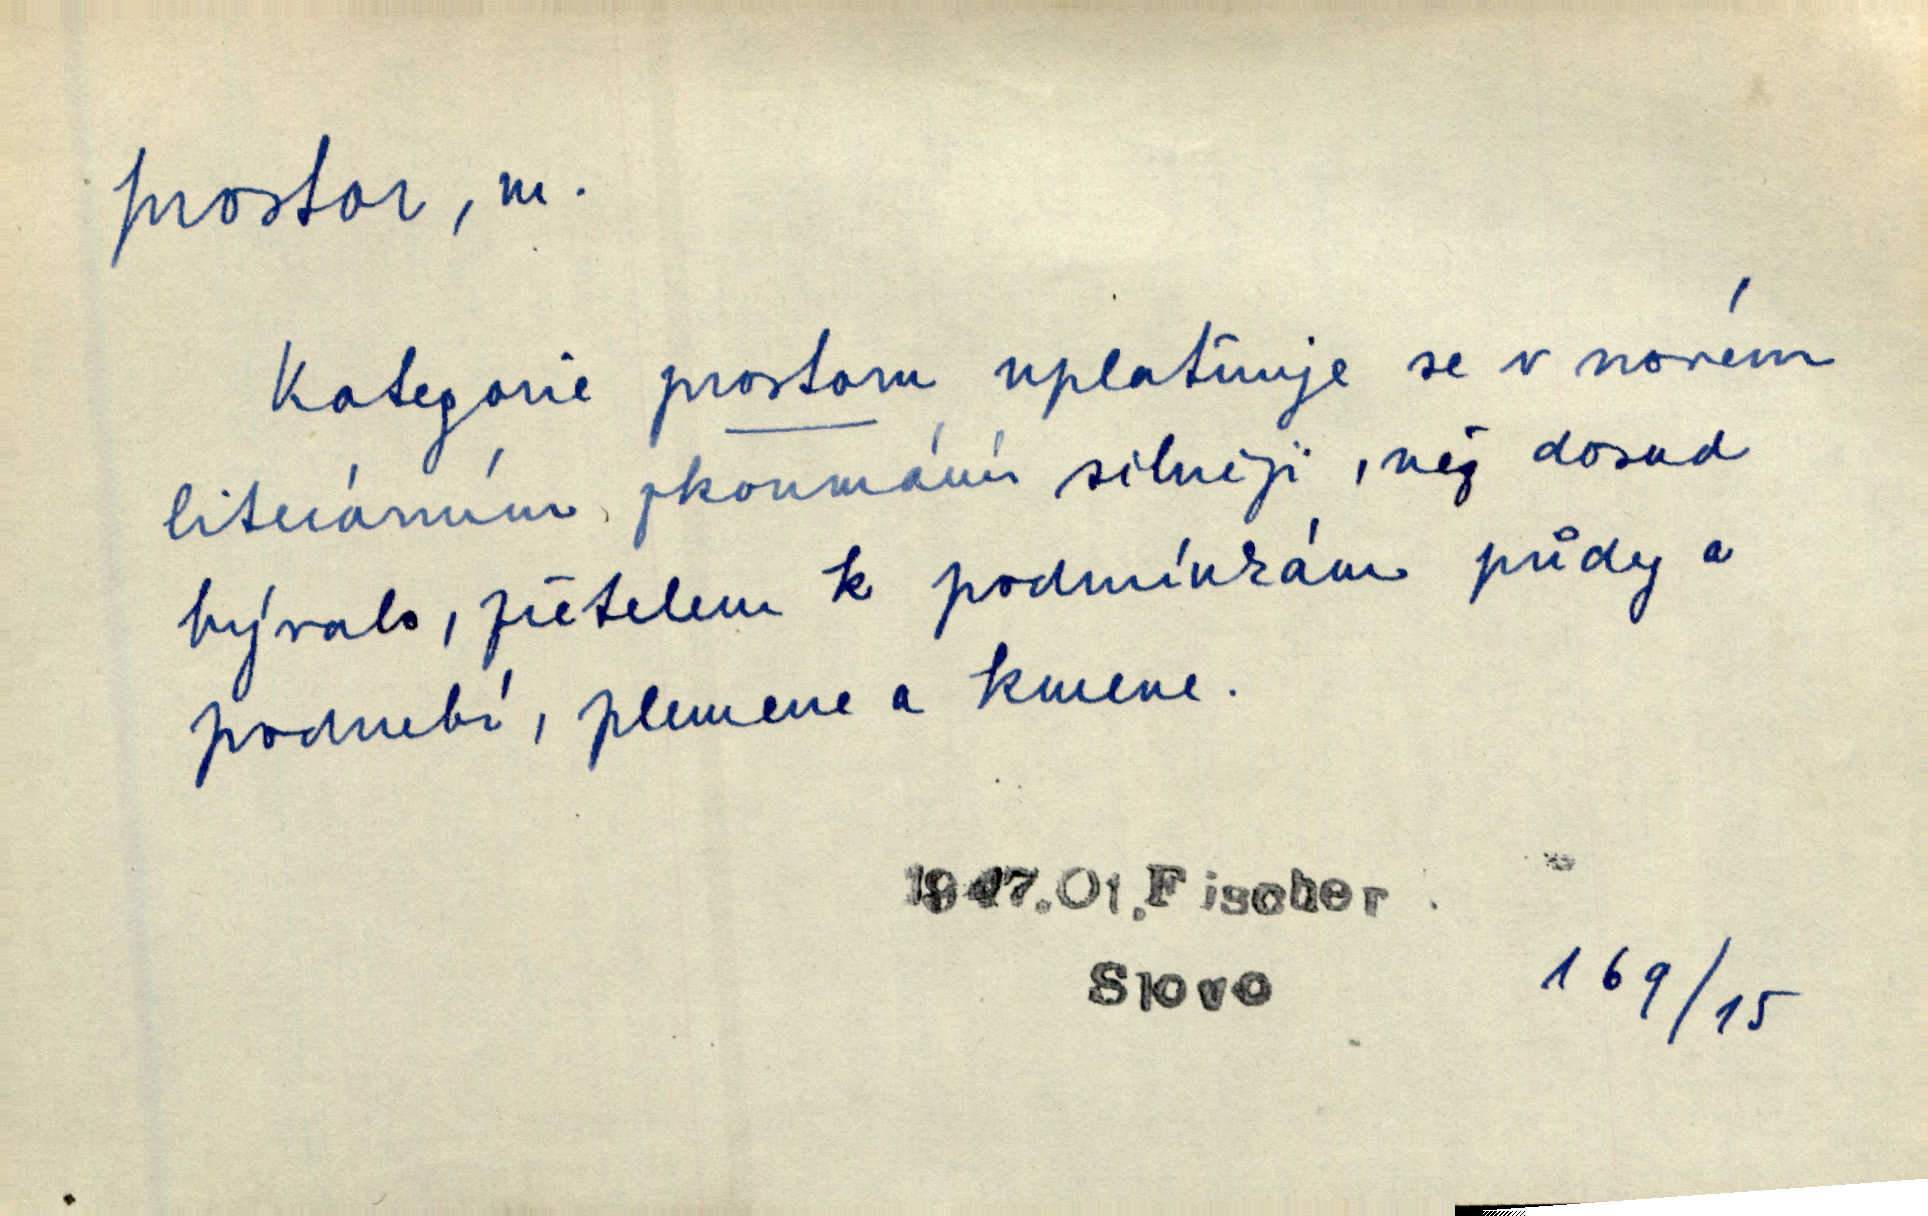 prostor, m.
Kategorie prostoru uplatňuje se v novém
literárním zkoumání silněji, něž dosud
bývalo, zřetelem k podmínkám půdy a
podnebí, plemene a kmene.
1947.Ot.Fischer
Slovo
169/15